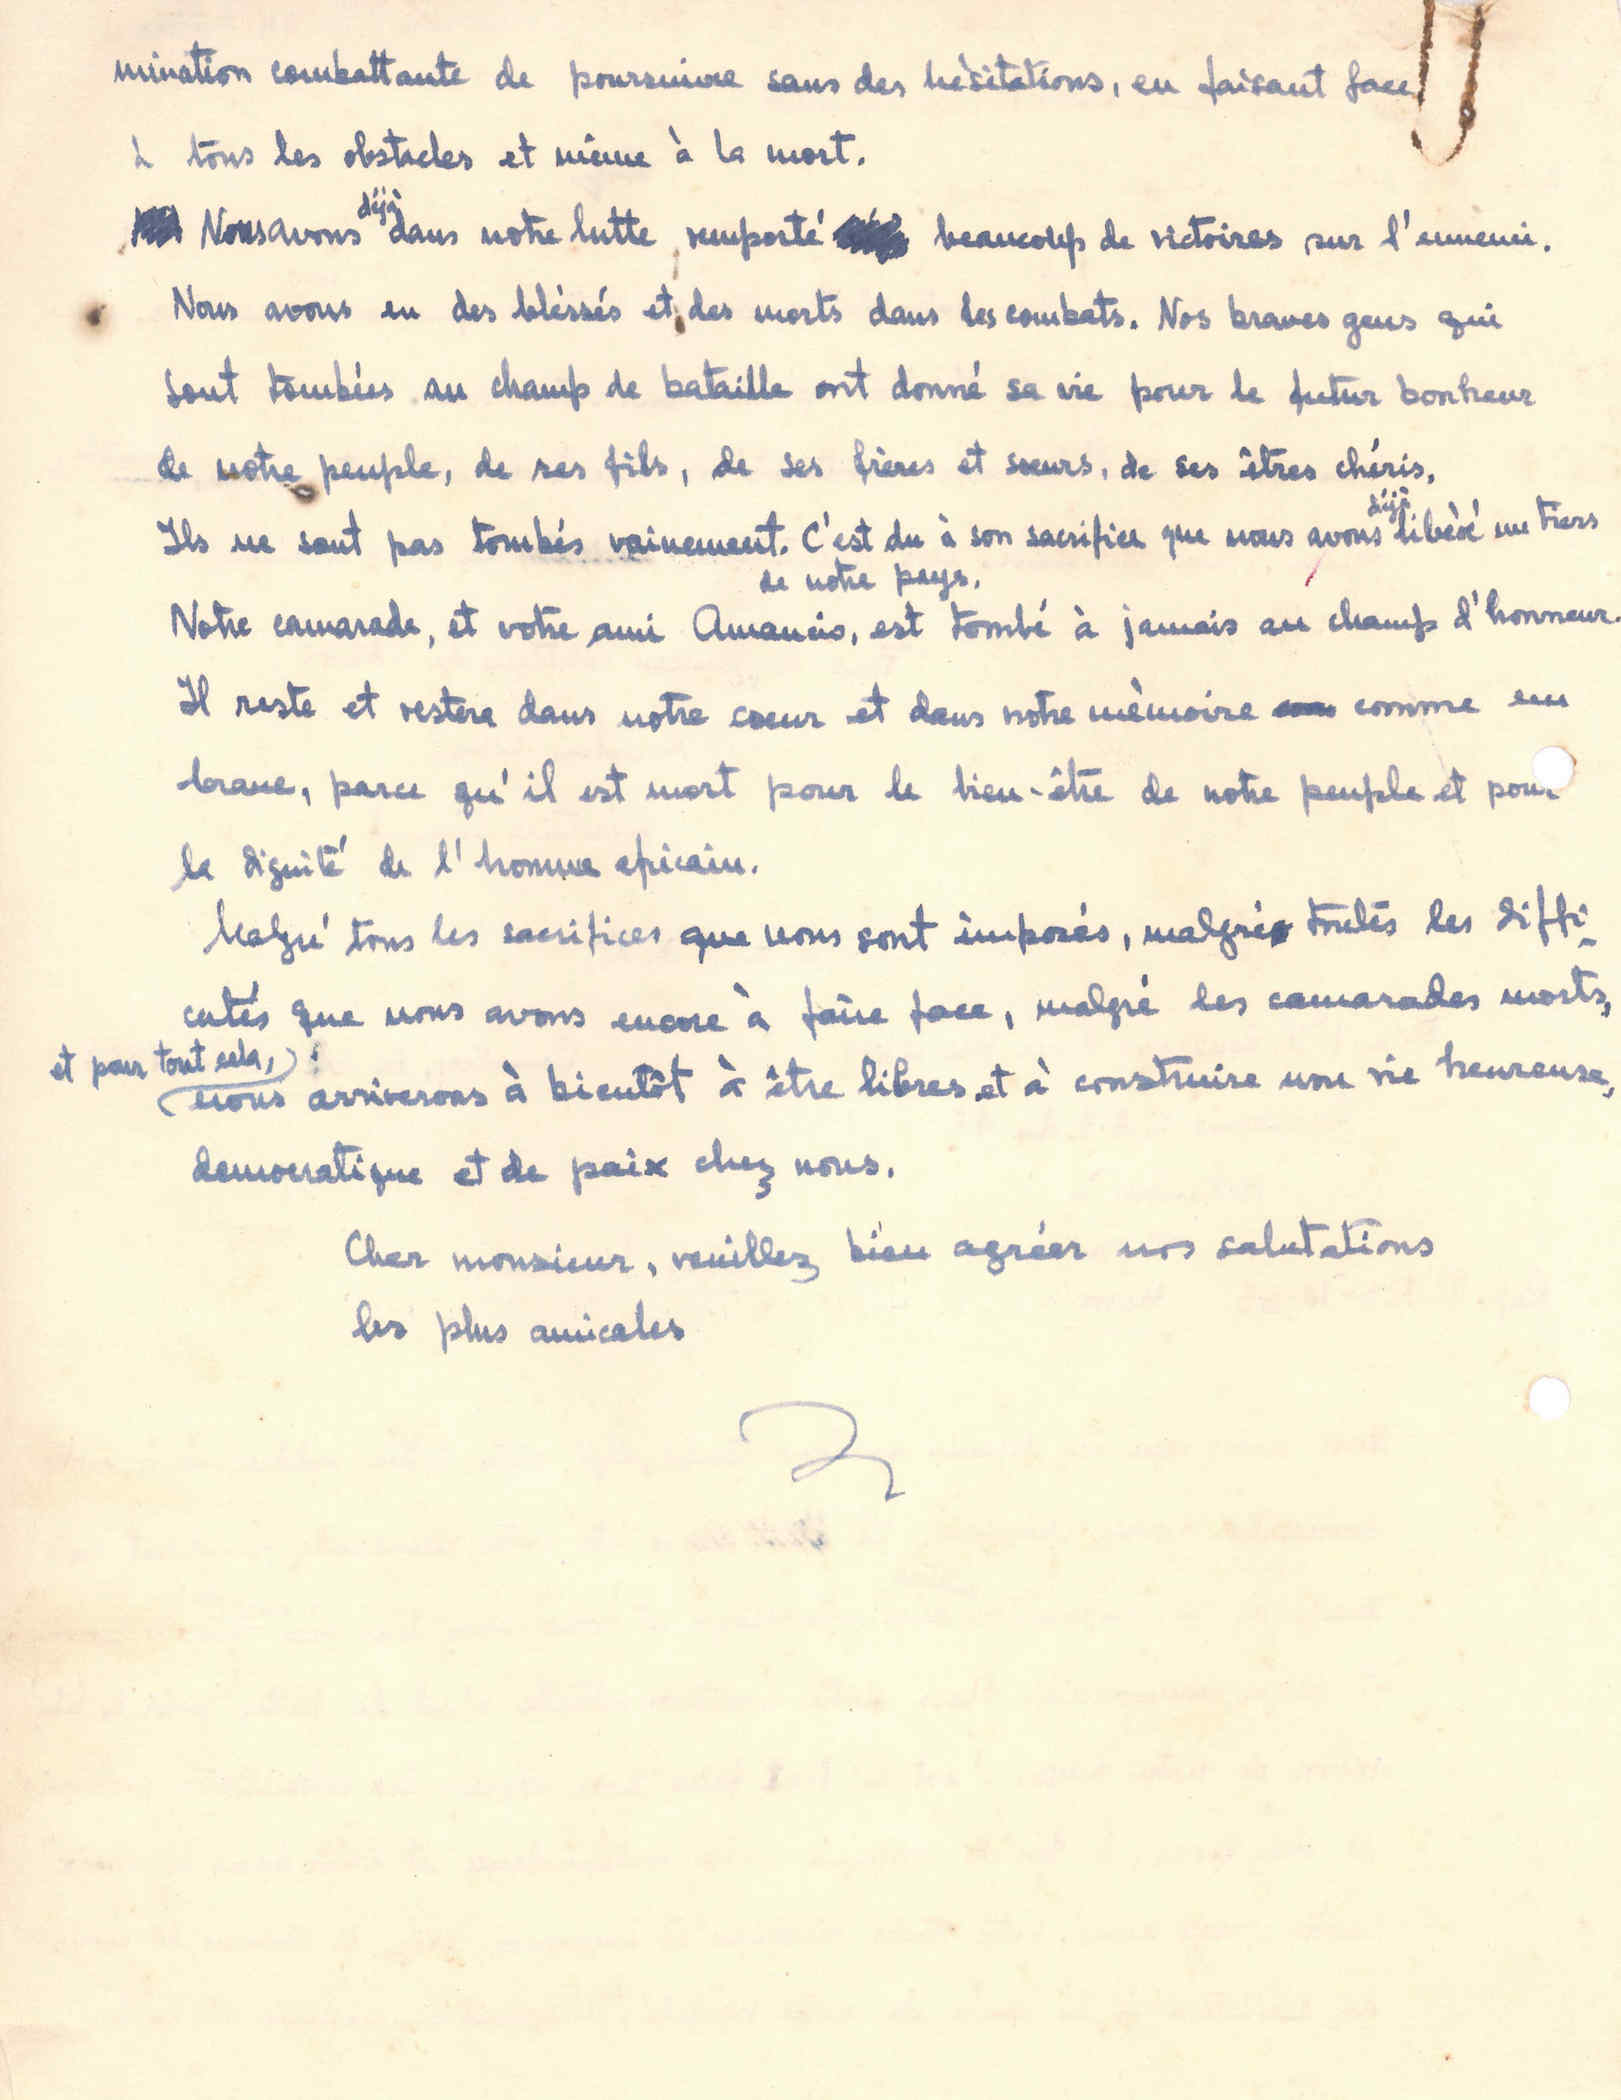 mination combattante de poursuivre sans des hèsitations, en faisant face
à tous les obstacles et même à la mort.
déjà
Nous avons dans notre lutte remporté beaucoup de victoires sur l'ennemi.
Nous avons eu des bléssés et des morts dans les combats. Nos braves gens qui
sont tombées au champ de bataille ont donné sa vie pour le futur bonheur
de notre peuple, de ses fils, de ses frères et soeurs, de ses êtres chéris.
déjà
Ils ne sont pas tombés vainement. C'est du à son sacrifice que nous avons libèré un tiers
de notre pays.
Notre camarade, et votre ami Amancio, est tombé à jamais au champ d'honneur.
Il reste et restera dans notre coeur et dans notre mèmoire comme un
brave, parce qu'il est mort pour le bien-être de notre peuple et pour
la dignité de l'homme africain.
Malgré tous les sacrifices que nous sont imposés, malgré toutes les diffi-
cutés que nous avons encore à faire face, malgré les camarades morts,
et pour tout cela,
nous arriverons à bientôt à être libres et à construire une vie heureuse,
democratique et de paix chez nous.
Cher monsieur, veuillez bien agréer nos salutations
les plus amicales